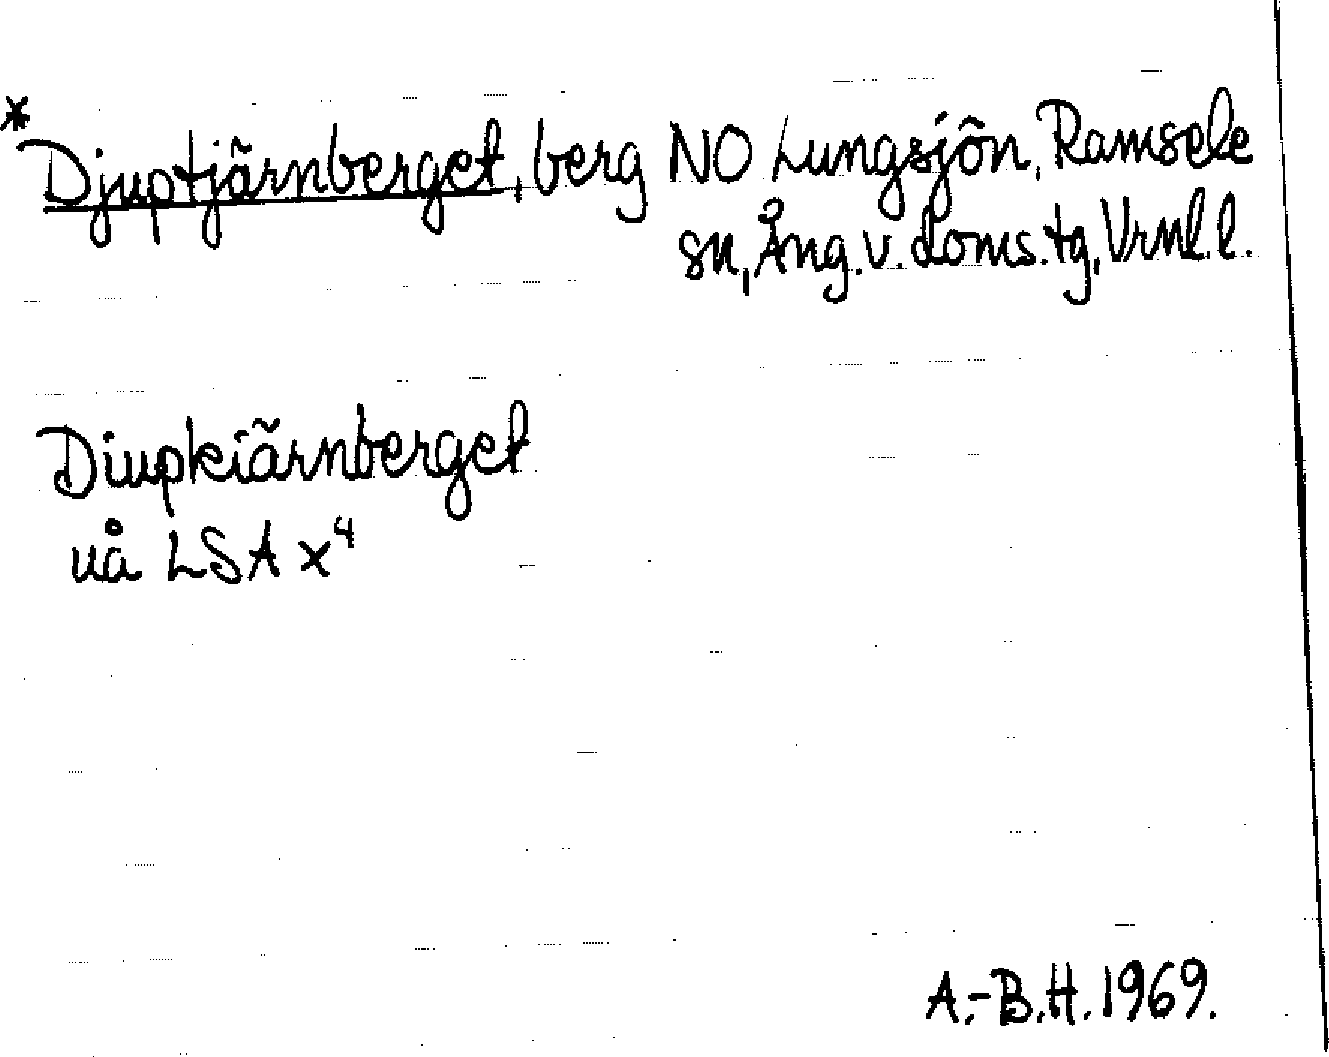 * Djuptjärnberget, berg NO Lungsjön, Ramsele
sn, Ång. v. doms. tg, Vrnl. l.
Diupkiärnberget
uå LSA x⁴
A.-B.H. 1969.